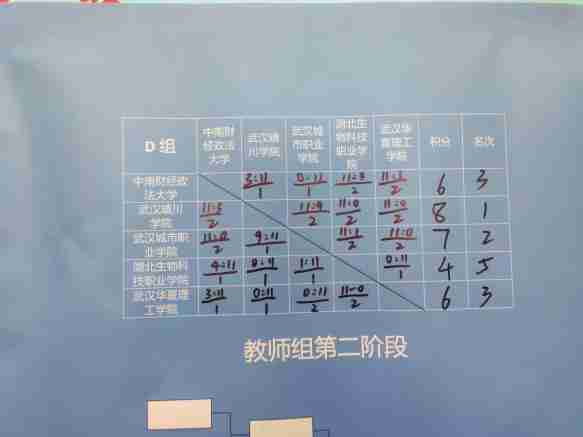 D 组 中南财经政法大学 武汉晴川学院 武汉城市职业学院 湖北生物科技职业学院 武汉华夏理工学院 积分 名次
中南财经政法大学 3:11 1 0:11 1 11:3 2 11:3 2 6 3
武汉晴川学院 11:3 2 11:9 2 11:0 2 11:0 2 8 1
武汉城市职业学院 11:0 2 9:11 1 11:1 2 11:0 2 7 2
湖北生物科技职业学院 4:11 1 0:11 1 1:11 1 0:11 1 4 5
武汉华夏理工学院 3:11 1 0:11 1 0:11 2 11-0 2 6 3
教师组第二阶段